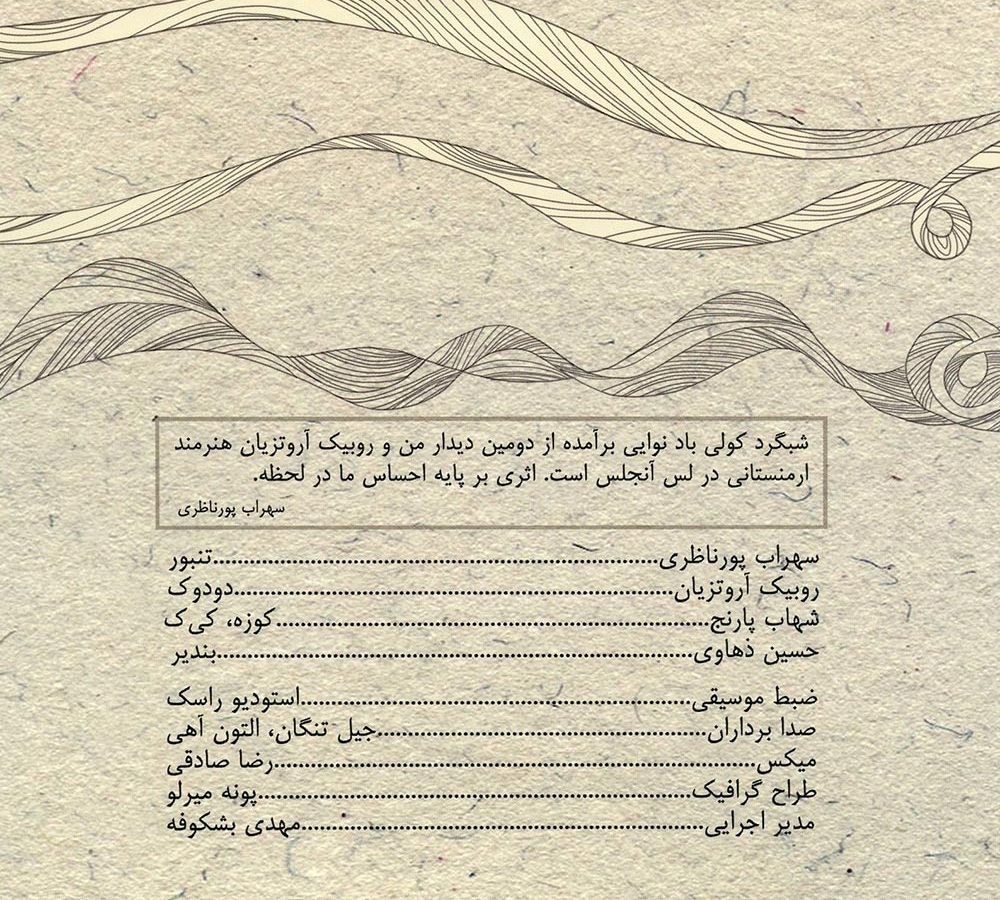 شبگرد کولی باد نوایی برآمده از دومین دیدار من و روبیک آروتزیان هنرمند
ارمنستانی در لس آنجلس است. اثری بر پایه احساس ما در لحظه.
سهراب پورناظری
سهراب پورناظری........................تنبور
روبیک آروتزیان........................دودوک
شهاب پارنج........................کوزه، کی ک
حسین ذهاوی........................بندیر
ضبط موسیقی........................استودیو راسک
صدا برداران........................جیل تنگان، التون آهی
میکس........................رضا صادقی
طراح گرافیک........................پونه میرلو
مدیر اجرایی........................مهدی بشکوفه